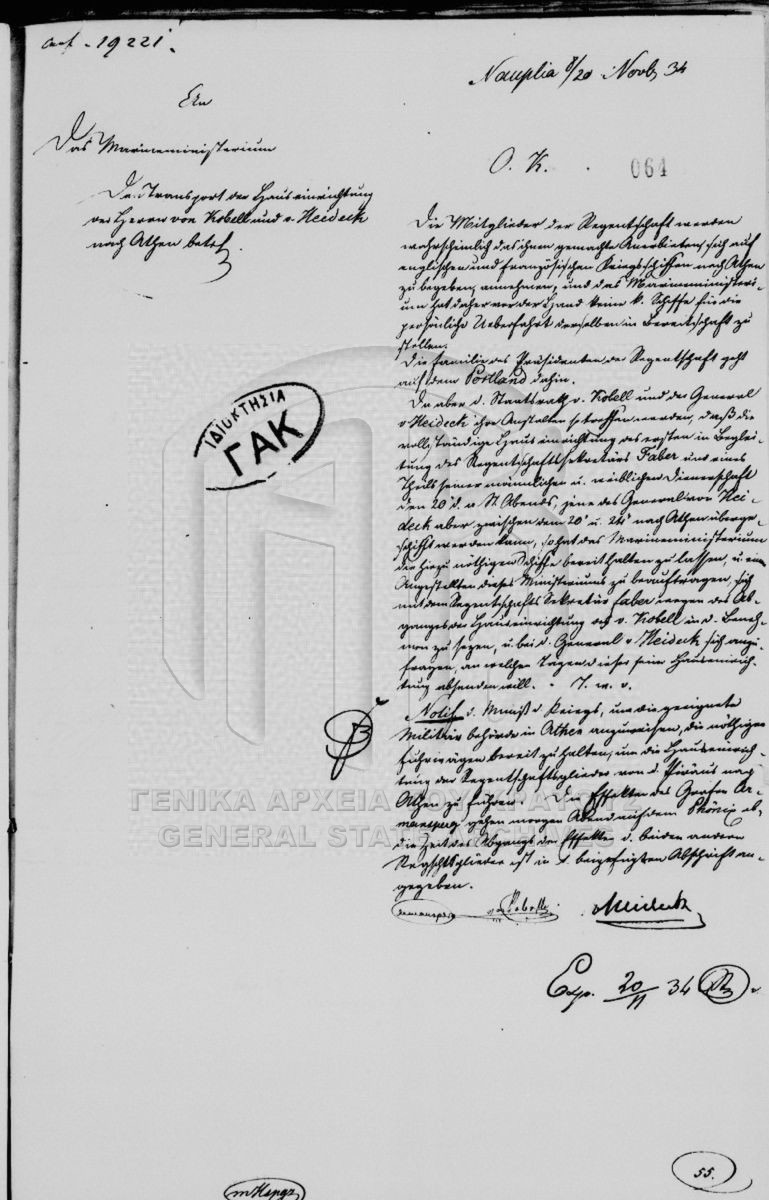 19221.
Nauplia 8/20 Novb 34
An
Das Marineministerium
Den Transport der Hauseinrichtung
der Herren von Kobell und v. Heideck
nach Athen betrf.
O. K.
064
Die Mitglieder der Regentschaft werden
wahrscheinlich das ihnen gemachte Anerbieten, sich auf
englischen und französischen Kriegsschiffen nach Athen
zu begeben, annehmen, und das Marineministeri-
um hat daher vor der Hand keine k. Schiffe für die
persönliche Ueberfahrt derselben in Bereitschaft zu
stellen.
Die Familie des Präsidenten der Regentschaft geht
auf dem Portland dahin.
Da aber d. Staatsrath v. Kobell und der General
v Heideck ihre Anstalten so treffen werden, daß die
vollständige Hauseinrichtung des ersten in Beglei-
tung des Regentschaftssekretärs Faber und eines
Theils seiner männlichen u. weiblichen Dienerschaft
den 20' d. a. St. Abends, jene des General von Hei-
deck aber zwischen dem 20' u. 24' nach Athen überge-
schifft werden kann, so hat das Marineministerium
die hiezu nöthigen Schiffe bereit halten zu lassen, u. einen
Angestellten dieses Ministeriums zu beauftragen, sich
mit dem Regentschafts Sekretär Faber wegen des Ab-
ganges der Hauseinrichtung des v. Kobell in d. Beneh-
men zu sezen, u. bei d. General v Heideck sich anzu-
fragen, an welchen Tagen dieser seine Hauseinrich-
tung absenden will. - J. w. v.
Notif d. Minist d Kriegs, um die geeignete
Militär behörde in Athen anzuweisen, die nöthigen
Fuhrwägen bereit zu halten, um die Hauseinrich-
tung der Regentschaftsglieder von d. Piräus nach
Athen zu führen. Die Effekten des Grafen Ar-
mansperg gehen morgen Abend auf dem Phönix ab,
die Zeit des Abgangs der Effekten d. beiden andern
Regschftsglieder ist in d. beigefügten Abschrift an-
gegeben.
Armansperg v. Kobell v Heideck
Exp. 20/11 34
ΙΔΙΟΚΤΗΣΙΑ
ΓΑΚ
ΓΕΝΙΚΑ ΑΡΧΕΙΑ ΤΟΥ ΚΡΑΤΟΥΣ
GENERAL STATE ARCHIVES
55.